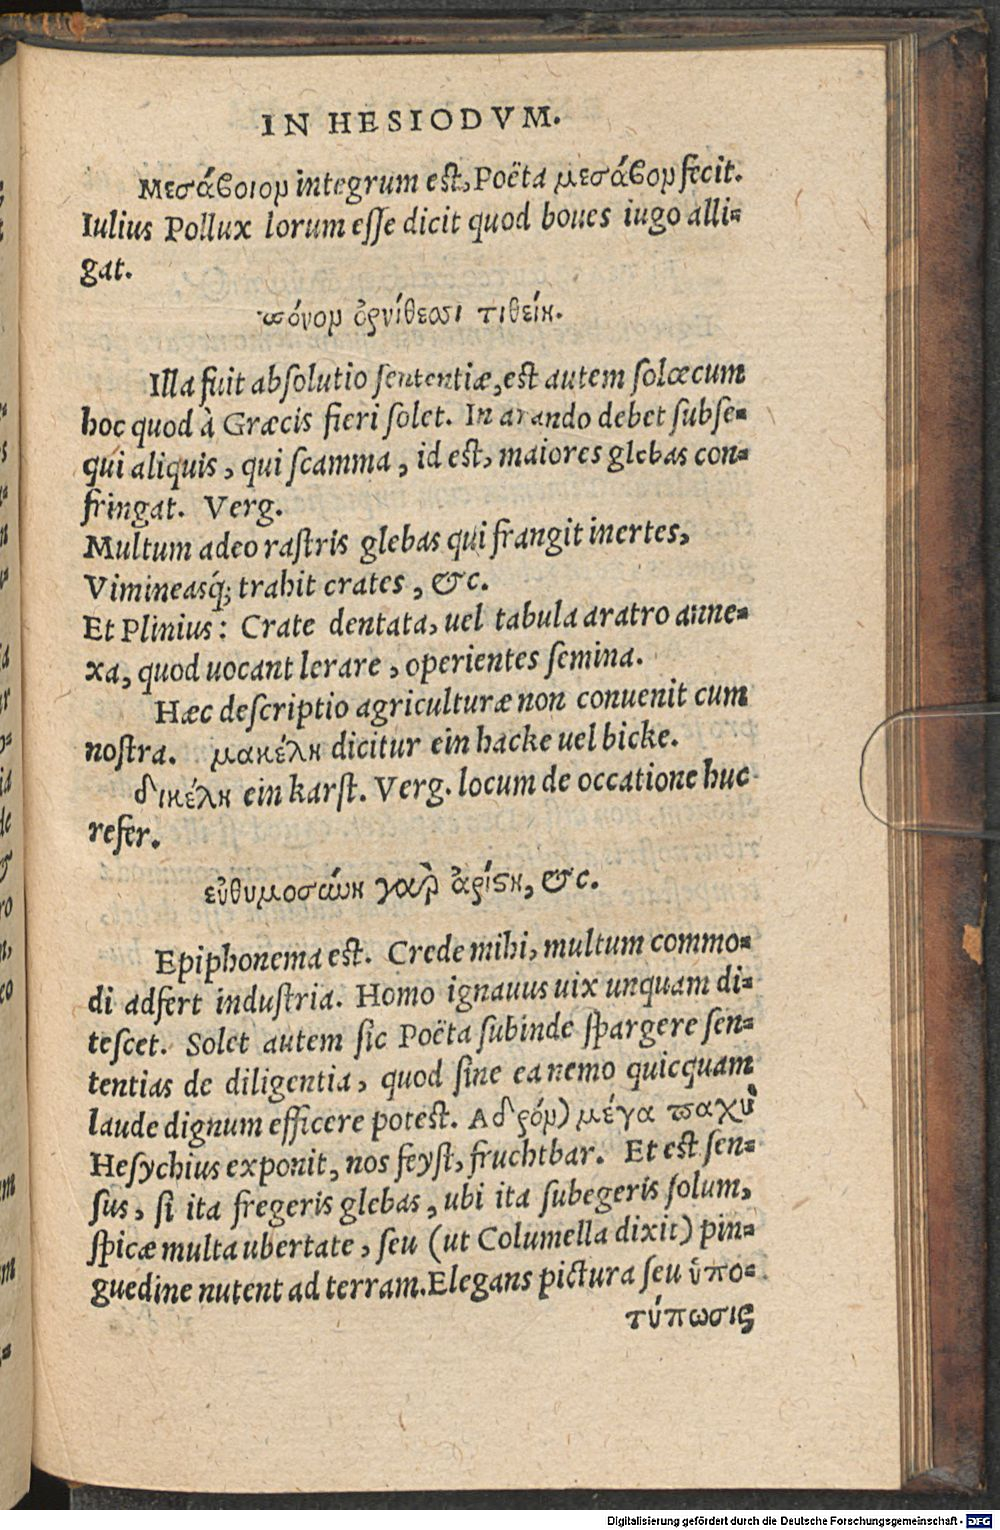 IN HESIODVM.
Μεσάβοιον integrum est, Poëta μεσάβον fecit.
Iulius Pollux lorum esse dicit quod boues iugo alli-
gat.
πόνον ὀρνίθεσσι τιθείη.
Illa fuit absolutio sententiæ, est autem solœcum
hoc quod à Græcis fieri solet. In arando debet subse-
qui aliquis, qui scamma, id est, maiores glebas con-
fringat. Verg.
Multum adeo rastris glebas qui frangit inertes,
Vimineasq́; trahit crates, &c.
Et Plinius: Crate dentata, uel tabula aratro anne-
xa, quod uocant lerare, operientes semina.
Hæc descriptio agriculturæ non conuenit cum
nostra. μακέλη dicitur ein hacke uel bicke.
δικέλη ein karst. Verg. locum de occatione huc
refer.
εὐθυμοσύνη γαρ ἀρίστη, &c.
Epiphonema est. Crede mihi, multum commo-
di adfert industria. Homo ignauus uix unquam di-
tescet. Solet autem sic Poëta subinde spargere sen-
tentias de diligentia, quod sine ea nemo quicquam
laude dignum efficere potest. Αδρόν) μέγα παχὺ
Hesychius exponit, nos feyst, fruchtbar. Et est sen-
sus, si ita fregeris glebas, ubi ita subegeris solum,
spicæ multa ubertate, seu (ut Columella dixit) pin-
guedine nutent ad terram. Elegans pictura seu ὑπο-
τύπωσις
Digitalisierung gefördert durch die Deutsche Forschungsgemeinschaft - DFG